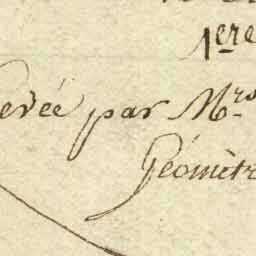 1ere
levée par Mrs
Géomètr